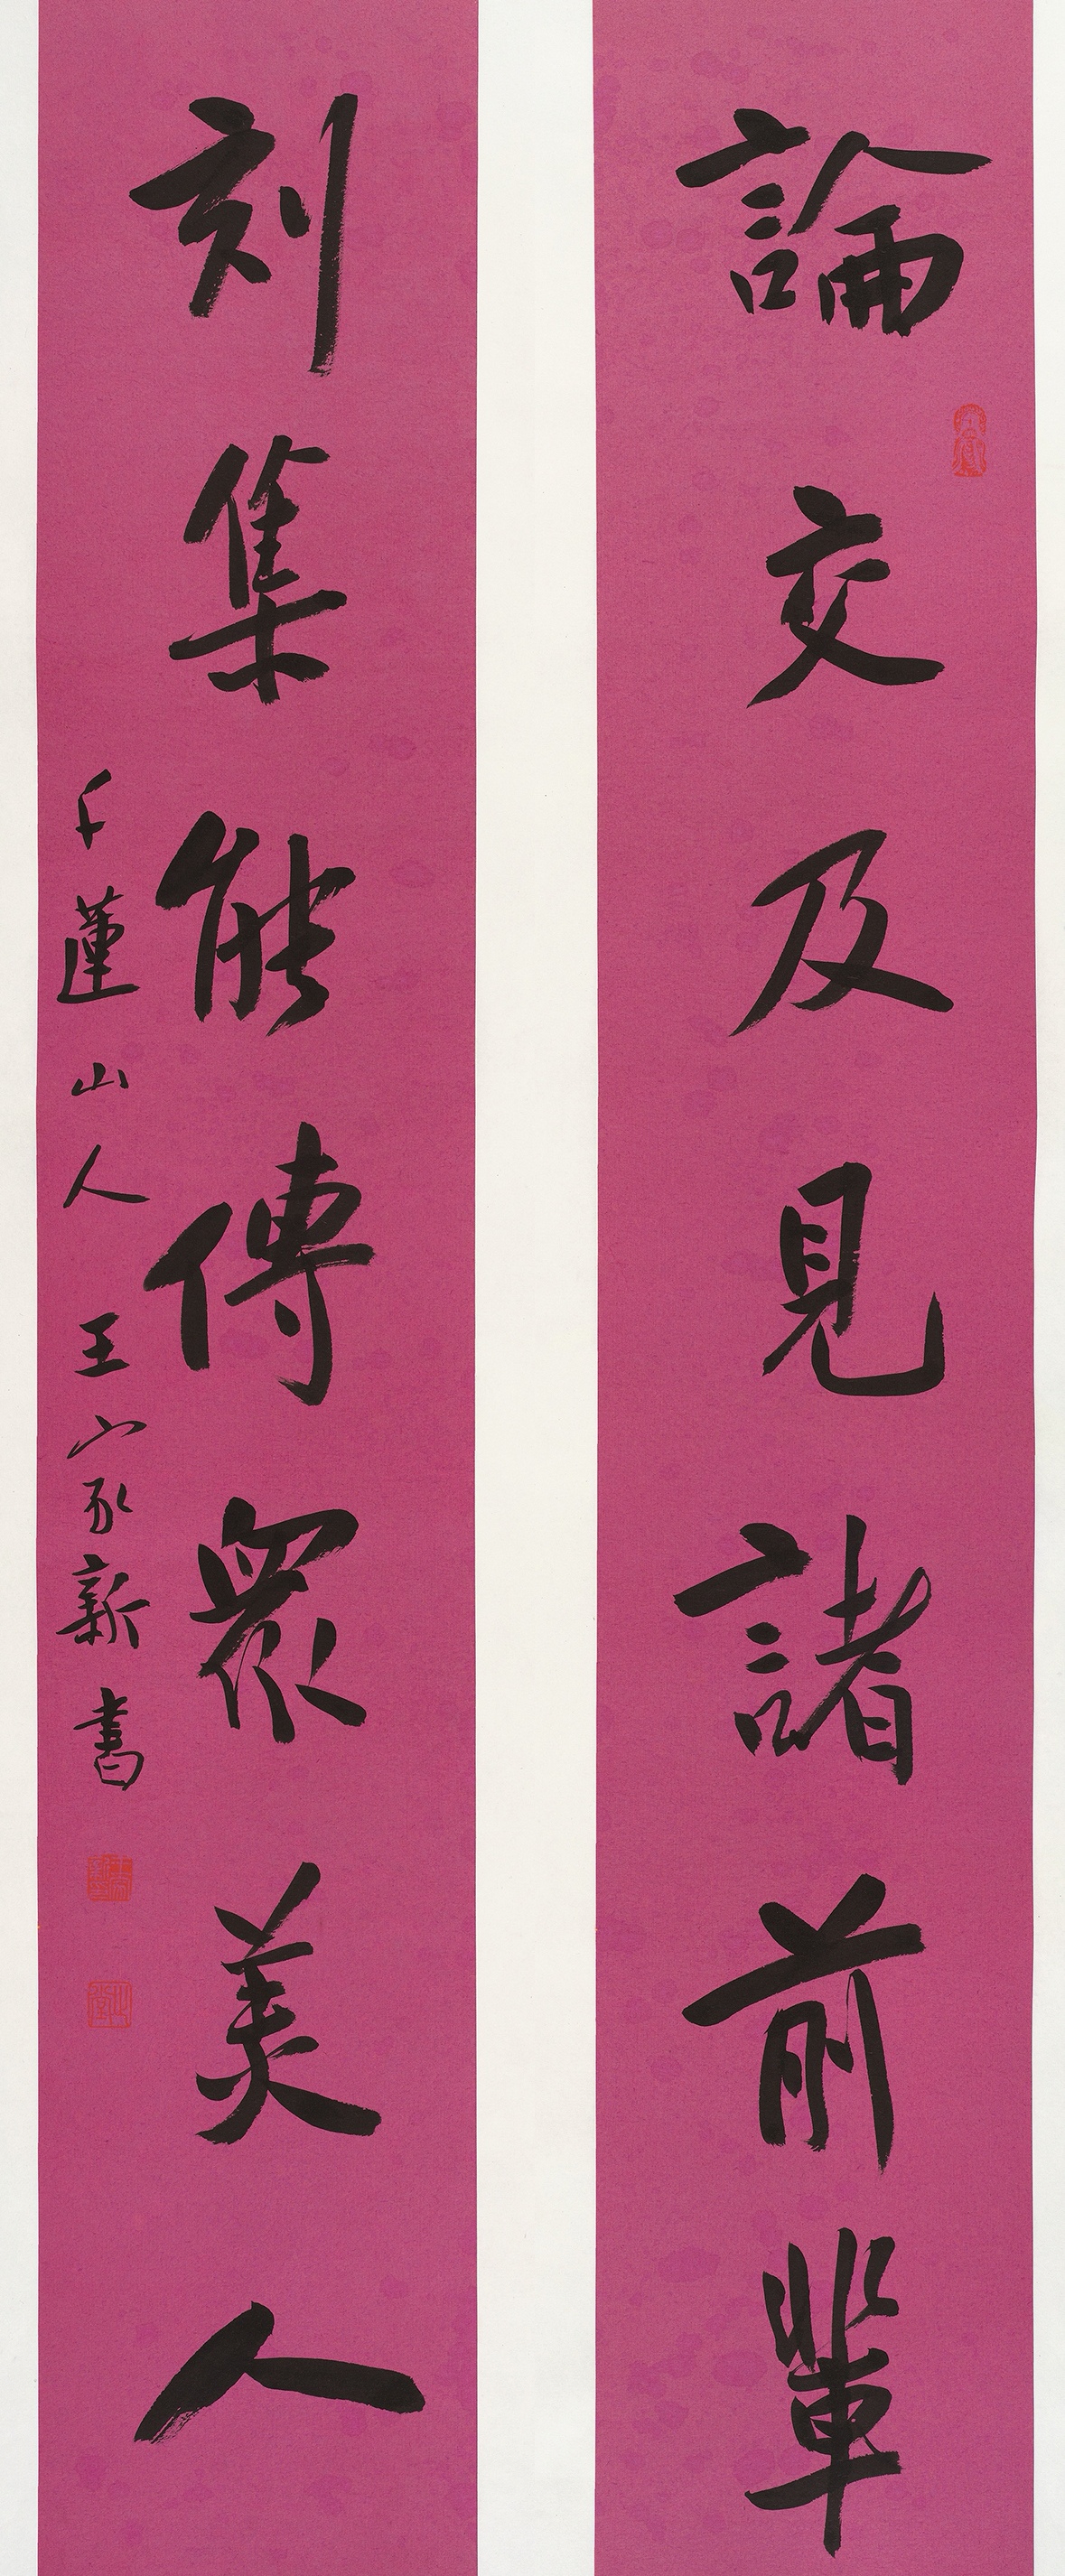 論交及見諸前輩
刻集能傳眾美人
千蓮山人王家新書